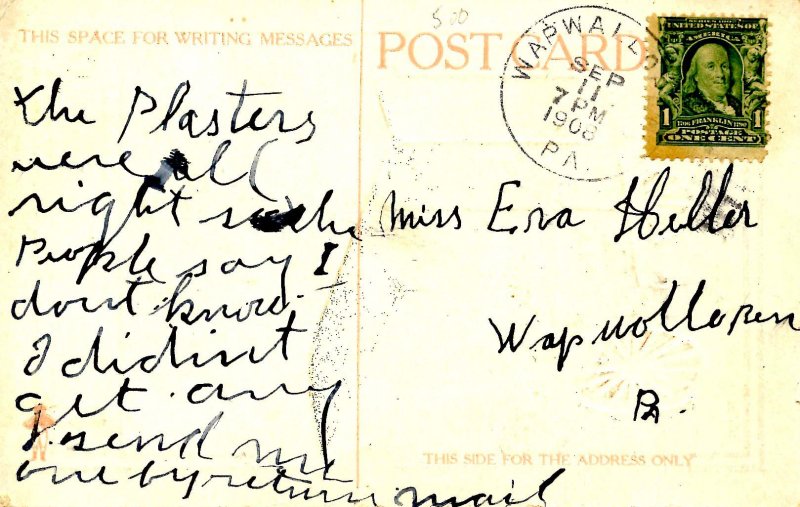 500
THIS SPACE FOR WRITING MESSAGES
POST CARD
WAPWALLO
SEP
11
7 PM
1908
PA.
SERIES 1902
UNITED STATES OF AMERICA
1 1706 FRANKLIN 1790 1
POSTAGE
ONE CENT
the Plasters
were all
right so the
People say I
dont know.
I didint
get any
send me
one by return mail
Miss Eva Heller
Wapwollopen
PA.
THIS SIDE FOR THE ADDRESS ONLY